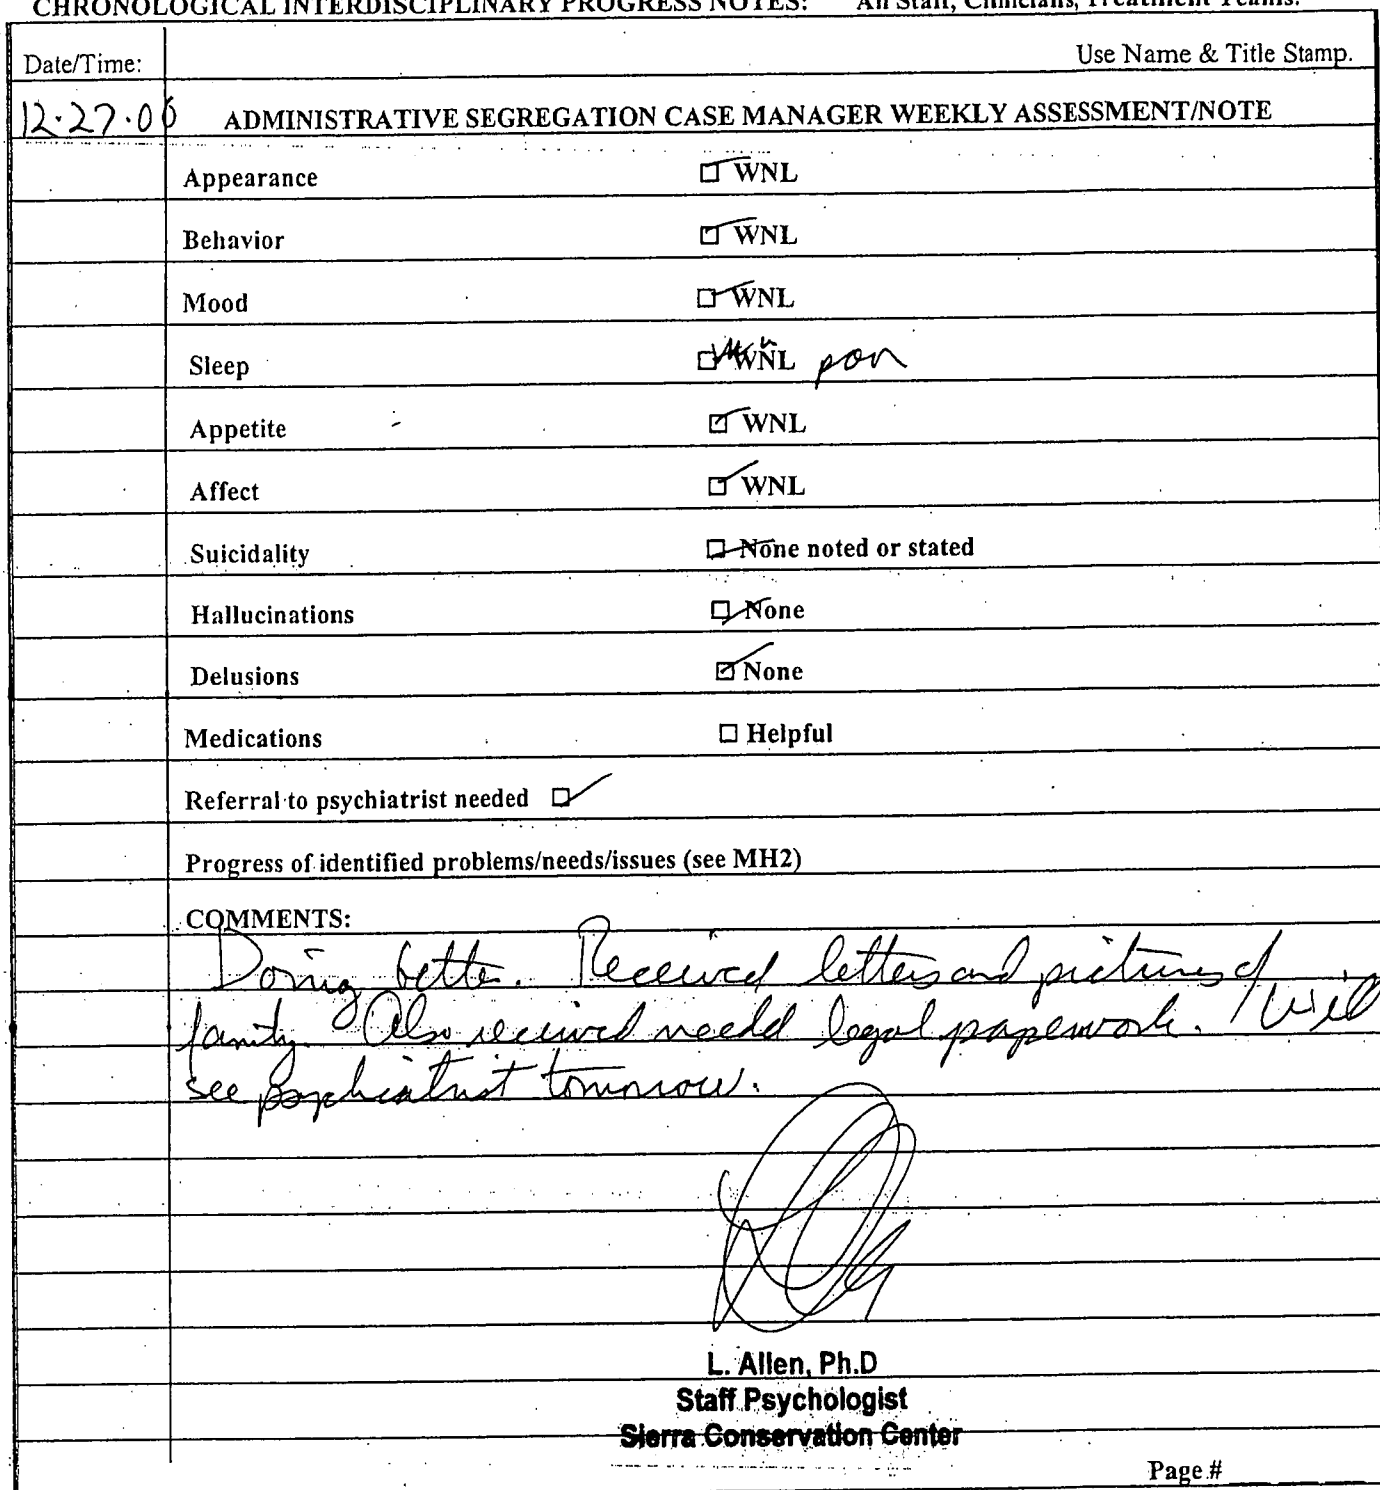 CHRONOLOGICAL INTERDISCIPLINARY PROGRESS NOTES: All Staff, Clinicians, Treatment Teams.
Date/Time: Use Name & Title Stamp.
12.27.06 ADMINISTRATIVE SEGREGATION CASE MANAGER WEEKLY ASSESSMENT/NOTE
Appearance ☑ WNL
Behavior ☑ WNL
Mood ☑ WNL
Sleep ☐ WNL poor
Appetite ☑ WNL
Affect ☑ WNL
Suicidality ☑ None noted or stated
Hallucinations ☑ None
Delusions ☑ None
Medications ☐ Helpful
Referral to psychiatrist needed ☑
Progress of identified problems/needs/issues (see MH2)
COMMENTS:
Doing better. Received letters and pictures of
family. Also received needed legal paperwork. Will
see psychiatrist tomorrow.
L. Allen, Ph.D
Staff Psychologist
Sierra Conservation Center
Page #